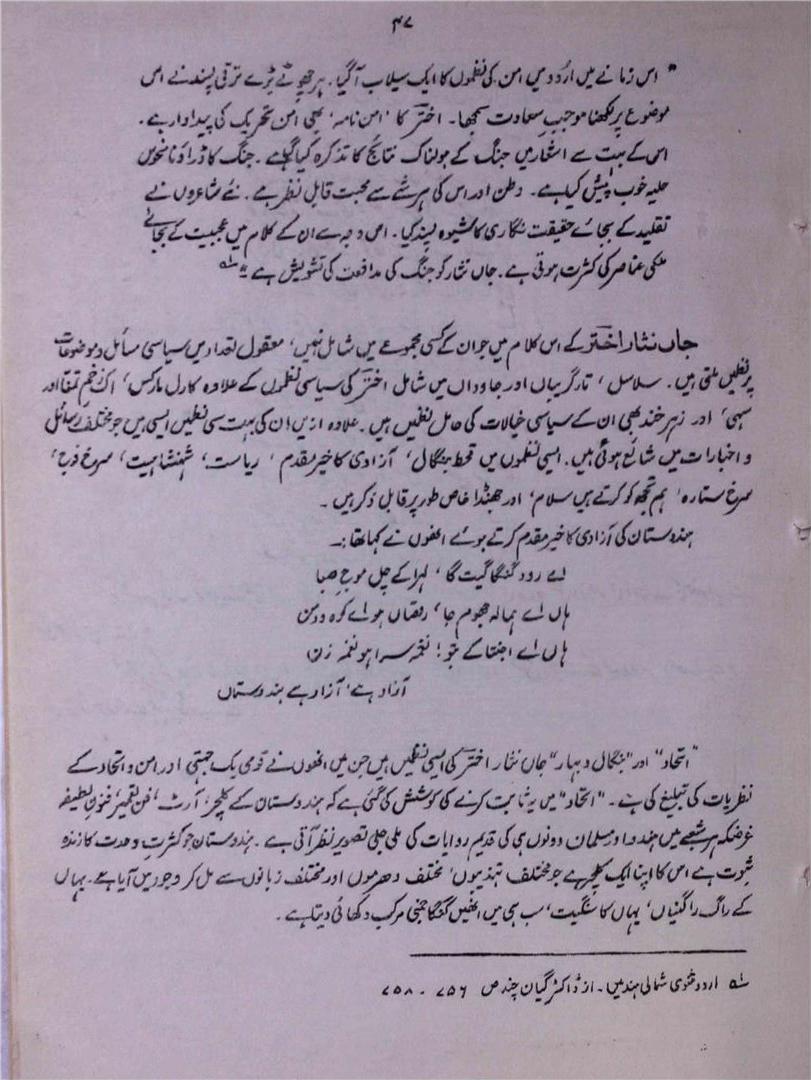 ۴۷
" اس زمانے میں اردو میں امن کی نظموں کا ایک سیلاب آ گیا۔ ہر چھوٹے بڑے ترقی پسند نے اس
موضوع پر لکھنا موجبِ سعادت سمجھا۔ اختر کا 'امن نامہ' بھی امن تحریک کی پیداوار ہے۔
اس کے بہت سے اشعار میں جنگ کے ہولناک نتائج کا تذکرہ کیا گیا ہے۔ جنگ کا ڈراؤنا نحویں
حلیہ خوب پیش کیا ہے۔ وطن اور اس کی ہر شے سے محبت قابلِ نظر ہے۔ نئے شاعروں نے
تقلید کے بجائے حقیقت نگاری کا شیوہ پسند کیا۔ اس وجہ سے ان کے کلام میں عجمیت کے بجائے
ملکی عناصر کی کثرت ہوتی ہے۔ جاں نثار کو جنگ کی مدافعت کی تشویش ہے " ؎۱
جاں نثار اختر کے اس کلام میں جو ان کے کسی مجموعے میں شامل نہیں، معقول تعداد میں سیاسی مسائل و موضوعات
پر نظمیں ملتی ہیں۔ سلاسل، تارِ گریباں اور جاوداں میں شامل اختر کی سیاسی نظموں کے علاوہ کارل مارکس، اک خم تمغا اور
سہی، اور زہر خند بھی ان کے سیاسی خیالات کی حامل نظمیں ہیں۔ علاوہ ازیں ان کی بہت سی نظمیں ایسی ہیں جو مختلف رسائل
و اخبارات میں شائع ہوئی ہیں۔ ایسی نظموں میں قحطِ بنگال، آزادی کا خیر مقدم، ریاست، شہنشاہیت، سرخ فوج،
سرخ ستارہ، ہم تجھ کو کرتے ہیں سلام، اور جھنڈا خاص طور پر قابلِ ذکر ہیں۔
ہندوستان کی آزادی کا خیر مقدم کرتے ہوئے انھوں نے کہا تھا :۔
اے رودِ گنگا گیت گا، لہرا کے چل موجِ صبا
ہاں اے ہمالہ جھوم جا، رقصاں ہو اے کوہ و دمن
ہاں اے اجنتا کے بتو! نغمہ سرا ہو نغمہ زن
آزاد ہے، آزاد ہے ہندوستاں
"اتحاد" اور "بنگال و بہار" جاں نثار اختر کی ایسی نظمیں ہیں جن میں انھوں نے قومی یک جہتی اور امن و اتحاد کے
نظریات کی تبلیغ کی ہے۔ "اتحاد" میں یہ ثابت کرنے کی کوشش کی گئی ہے کہ ہندوستان کے کلچر، آرٹ، فنِ تعمیر، فنونِ لطیفہ
غرضکہ ہر شعبے میں ہندو اور مسلمان دونوں ہی کی قدیم روایات کی ملی جلی تصویر نظر آتی ہے۔ ہندوستان جو کثرت و وحدت کا زندہ
ثبوت ہے اس کا اپنا ایک کلچر ہے جو مختلف تہذیبوں، مختلف دھرموں اور مختلف زبانوں سے مل کر وجود میں آیا ہے۔ یہاں
کے راگ راگنیاں، یہاں کا سنگیت، سب ہی میں انھیں گنگا جمنی مرکب دکھائی دیتا ہے۔
؎۱ اردو مثنوی شمالی ہند میں۔ از ڈاکٹر گیان چند ص ۷۵۶ ۔ ۷۵۸